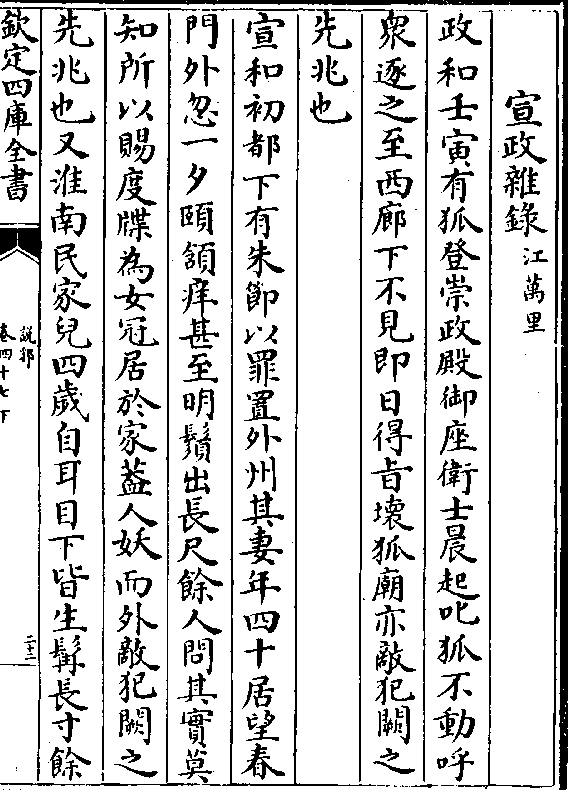 宣政雜錄 江萬里
政和壬寅有狐登崇政殿御座衛士晨起叱狐不動呼
衆逐之至西廊下不見即日得旨壊狐廟亦敵犯闕之
先兆也
宣和初都下有朱節以罪置外州其妻年四十居望春
門外忽一夕頤頷痒甚至明鬚出長尺餘人問其實莫
知所以賜度牒為女冠居於家葢人妖而外敵犯闕之
先兆也又淮南民家兒四歲自耳目下皆生髯長寸餘
欽定四庫全書
說郛
卷四十七下
二十二